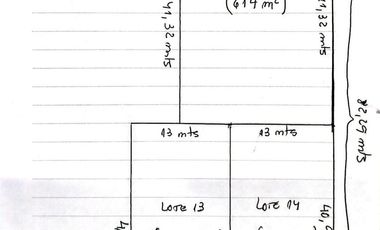 (614 m²)
41,32 mts
41,32 mts
82,29 mts
13 mts
13 mts
Lote 13
Lote 14
40,